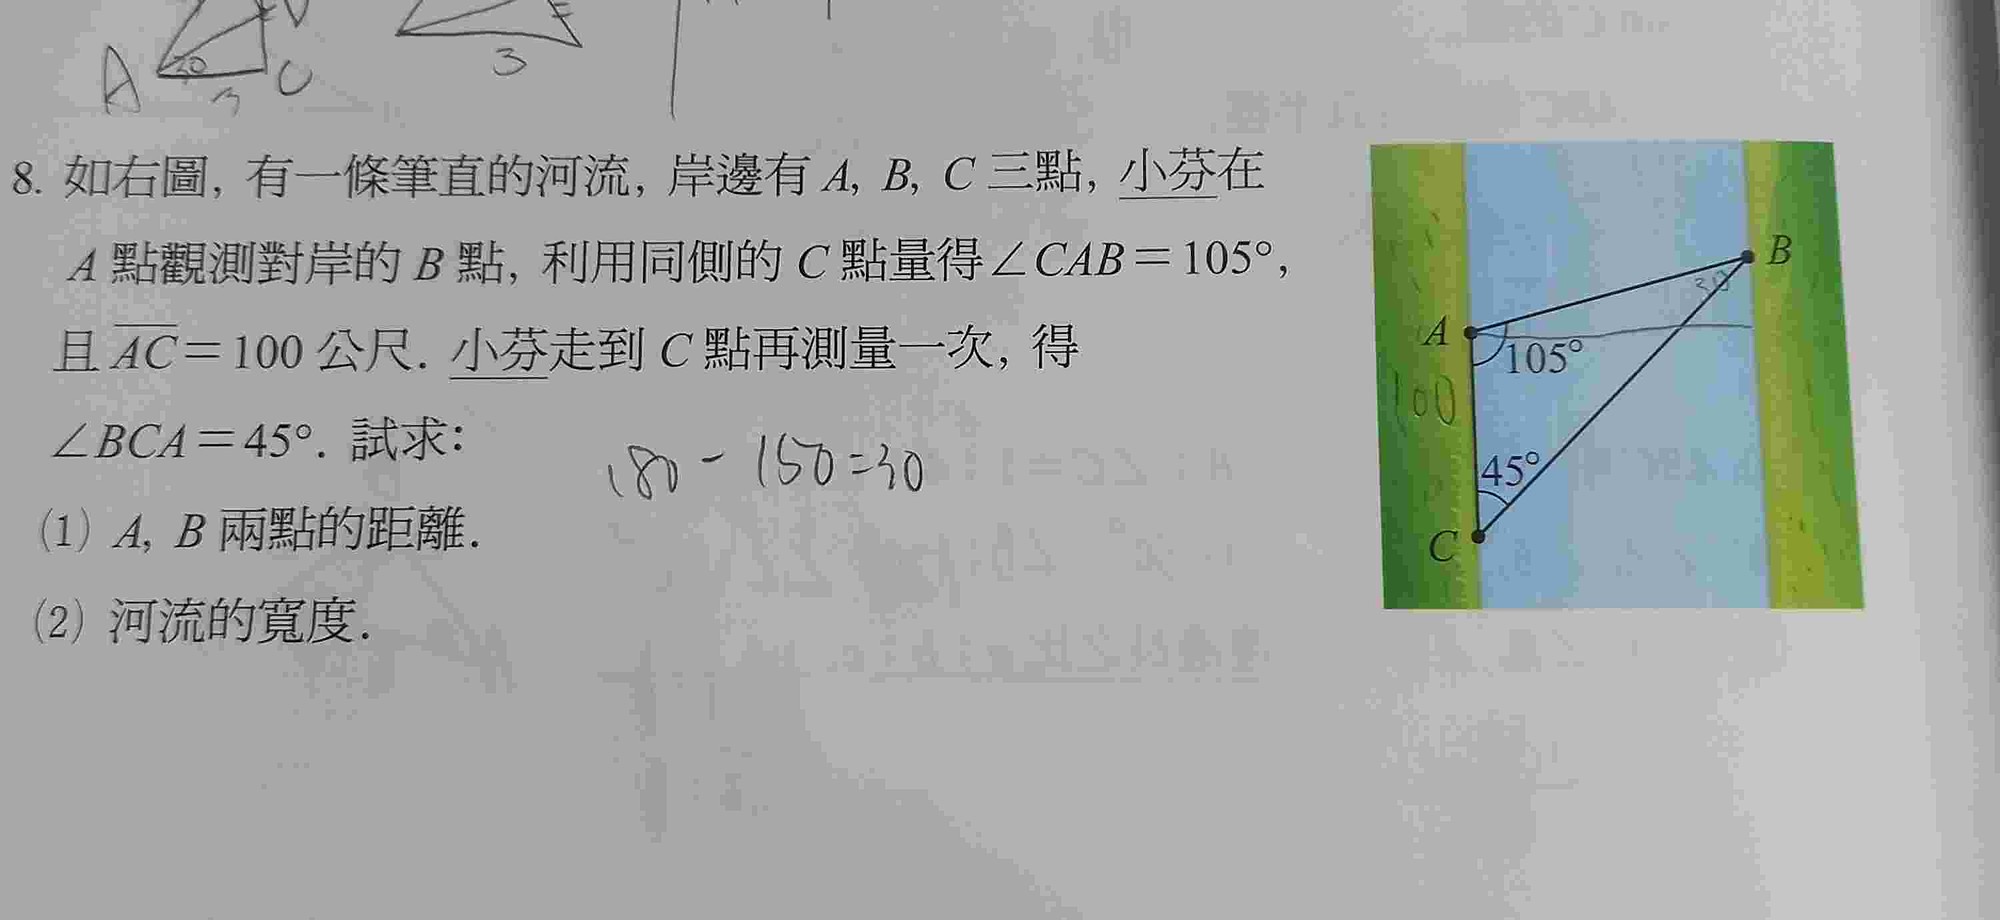 A
30
3
C
3
8. 如右圖, 有一條筆直的河流, 岸邊有 A, B, C 三點, 小芬在
A 點觀測對岸的 B 點, 利用同側的 C 點量得∠CAB=105°,
且 AC=100 公尺. 小芬走到 C 點再測量一次, 得
∠BCA=45°. 試求:
180-150=30
(1) A, B 兩點的距離.
(2) 河流的寬度.
B
30
A
105°
100
45°
C